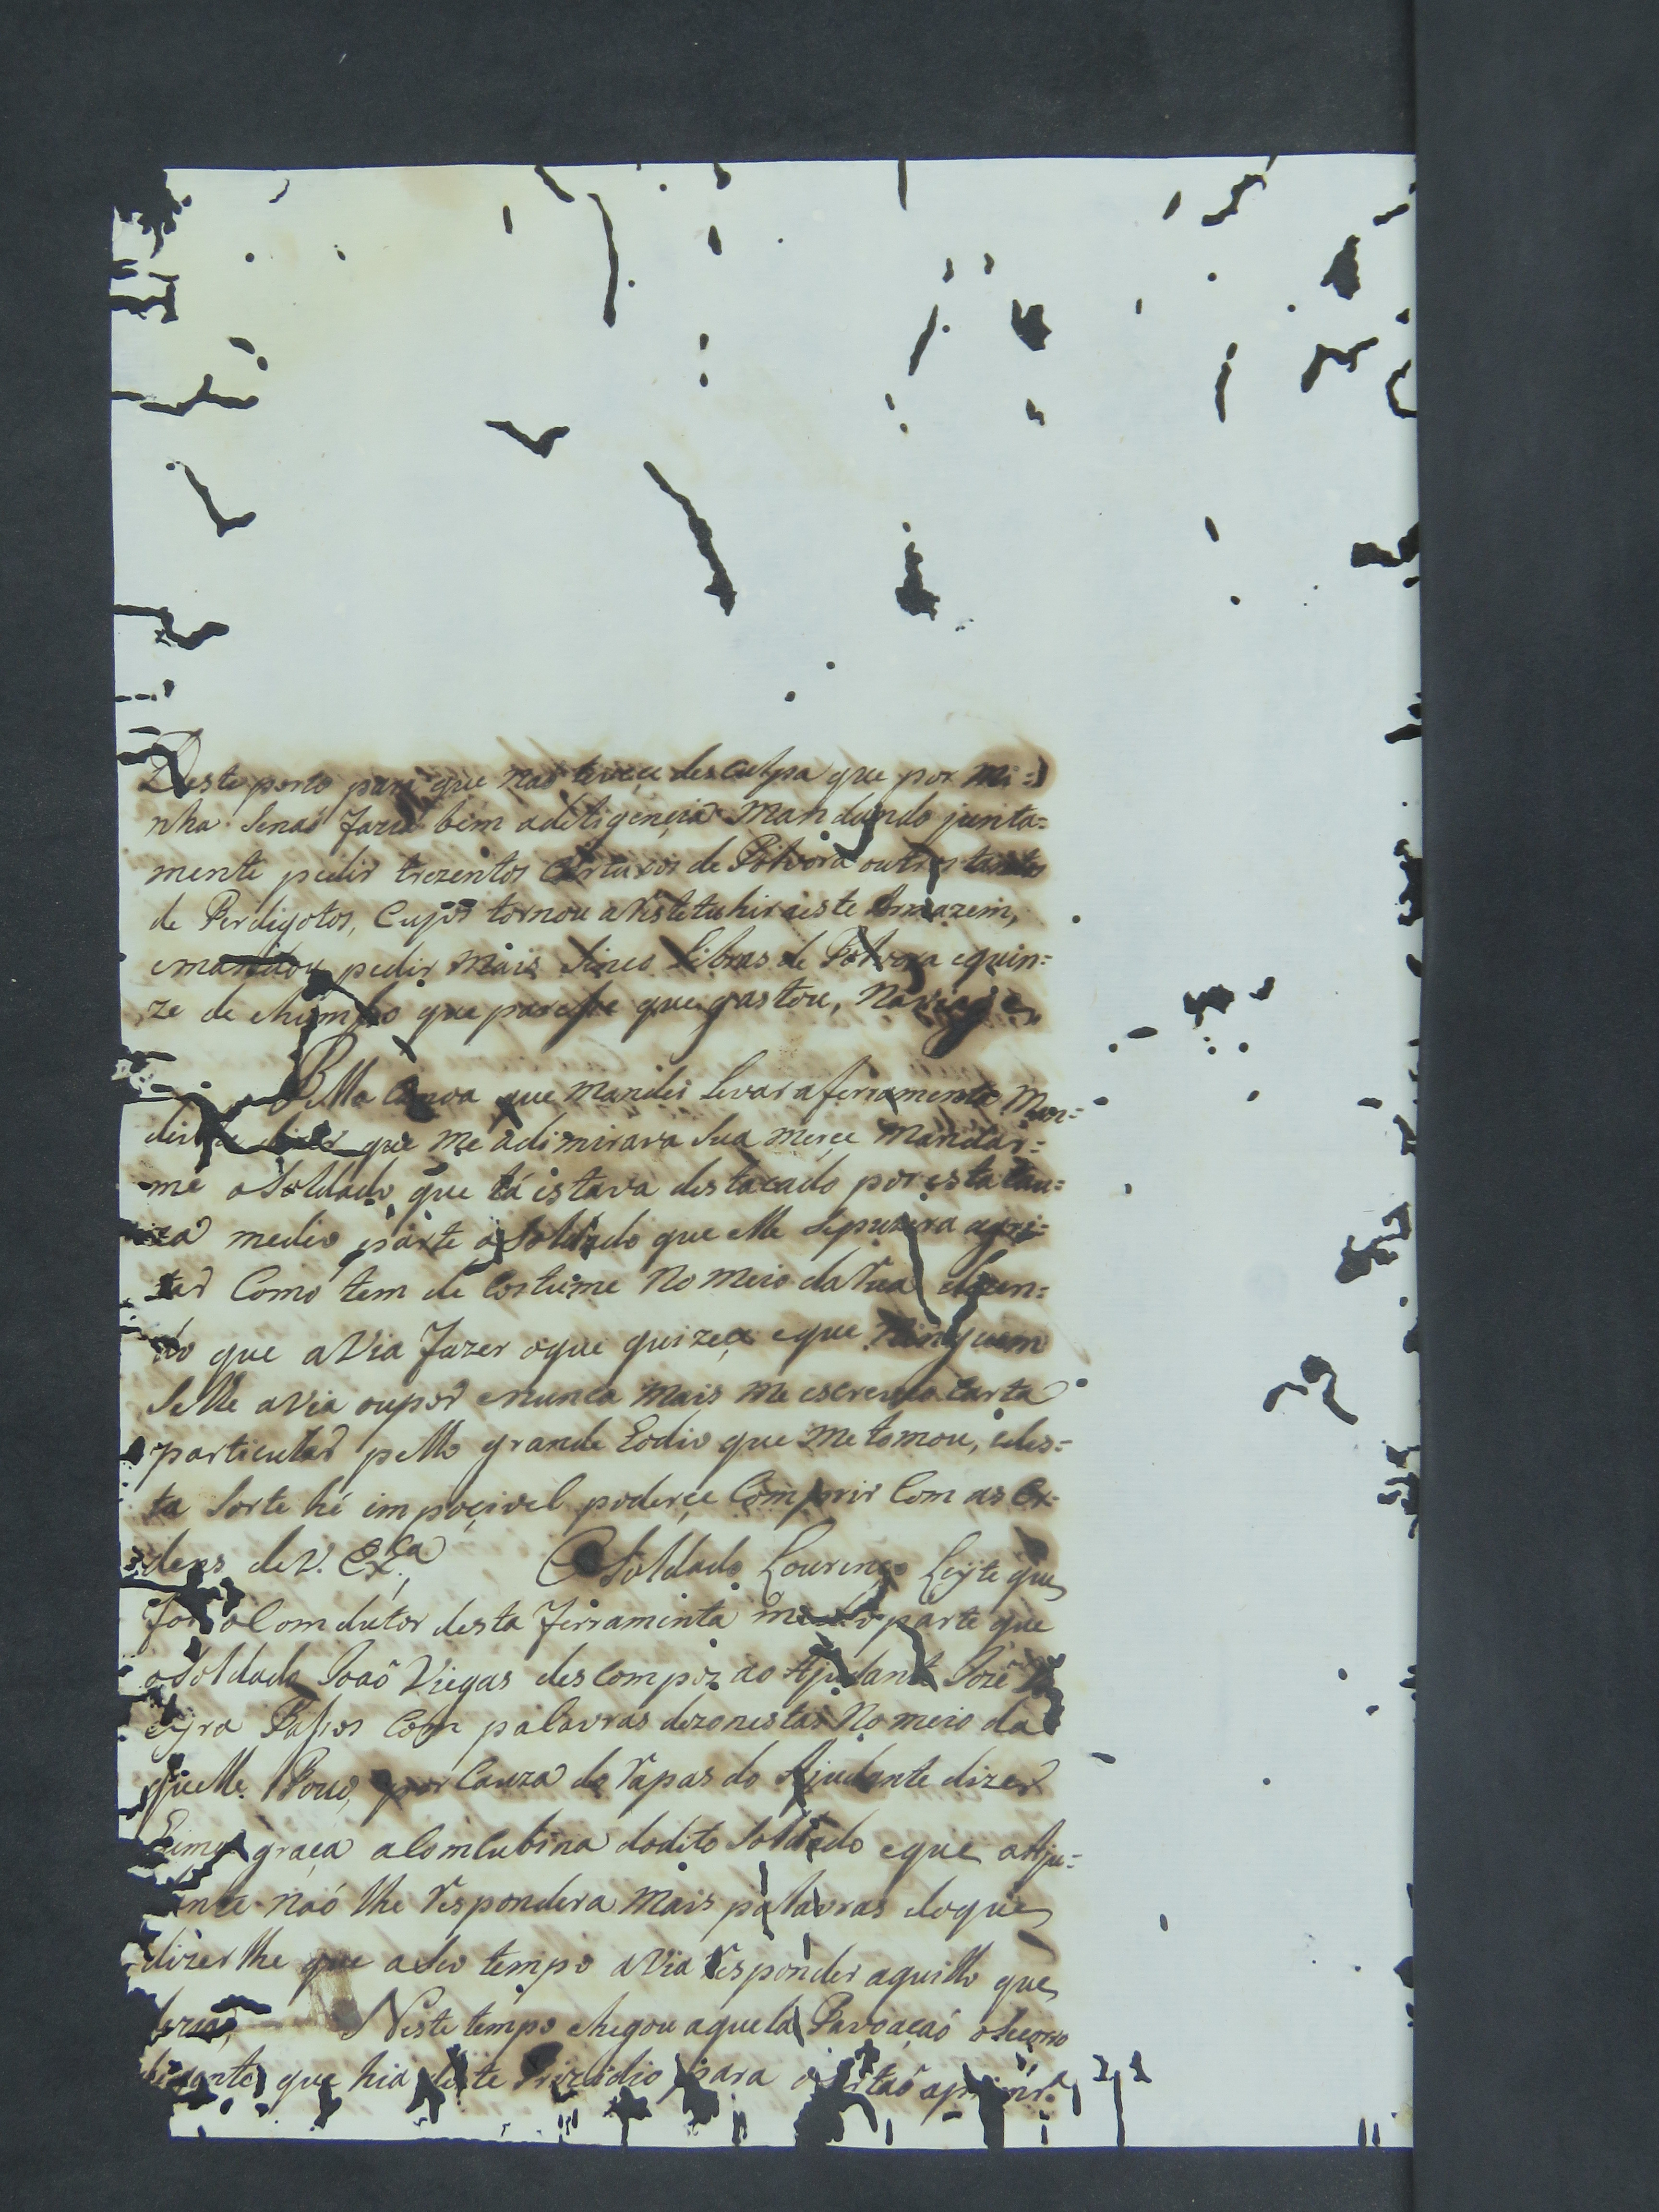 Deste porto para que naõ teveçe desculpa que por mi=
nha Senaõ fazia bem adeligençia Mandando junta=
mente pedir trezentos Cartuxos de Polvora outros tantos
de Perdigotos, Cujos tornou aRestetuhir aeste Armazem,
emandou pedir Mais Sinco Libras de Polvora equin=
ze de chumbo que pareSse que gastou, Naviagem
Pella Canoa que Mandei Levar aferramenta Man=
deilhe dizer que me adimirava Sua merçe Mandar=
me oSoldado que Lá estava destacado por esta Cau=
za medeo parte oSoldado que elle Sepuzera agri=
tar Como tem de Costume No meio da Rua dizen=
do que aVia fazer oque quizeçe eque Ninguem
Selhe aVia oupor enunca Mais me escreveo Carta
particular pello grande Eodio que Me tomou, edes=
ta Sorte hé impoçivel poderçe Comprir Com as Or=
dens de V. Ex.ª O Soldado Lourenço Leyte que
foi oComdutor desta ferraminta medeo parte que
oSoldado Joaõ Viegas descompoz ao Ajudante Jozé
eyra Passos Com palavras dezonestas No meio da
quelle Povo, por Cauza do Rapas do Ajudante dizer
huma graça aComcubina dodito Soldado eque oAju=
dante naõ lhe Respondera Mais palavras doque
dizerlhe que aSeo tempo aVia Responder aquillo que
Neste tempo chegou aquela Pavoaçaõ oSecorro
que hia deste Prizidio para oSertaõ